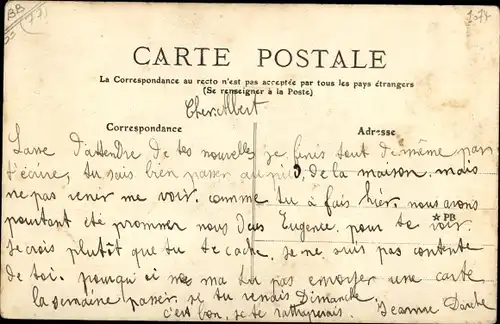 BB
1074
CARTE POSTALE
La Correspondance au recto n'est pas acceptée par tous les pays étrangers
(Se renseigner à la Poste)
Cher Albert
Correspondance
Adresse
Lasse d'attendre de tes nouvelles je finis tout de même par
t'écrire, tu sais bien passer au pied de la maison. mais
ne pas rener me voir. comme tu à fais hier. nous avons
pourtant été prommer nous deux Eugenie. pour te voir.
★PB
je crois plutôt que tu te cache. je ne suis pas contente
de toi. pourqui ma tu pas envoyer une carte
la semaine passer. se tu venais Dimanche.
c'est bon. je te rattraperais. Jeanne